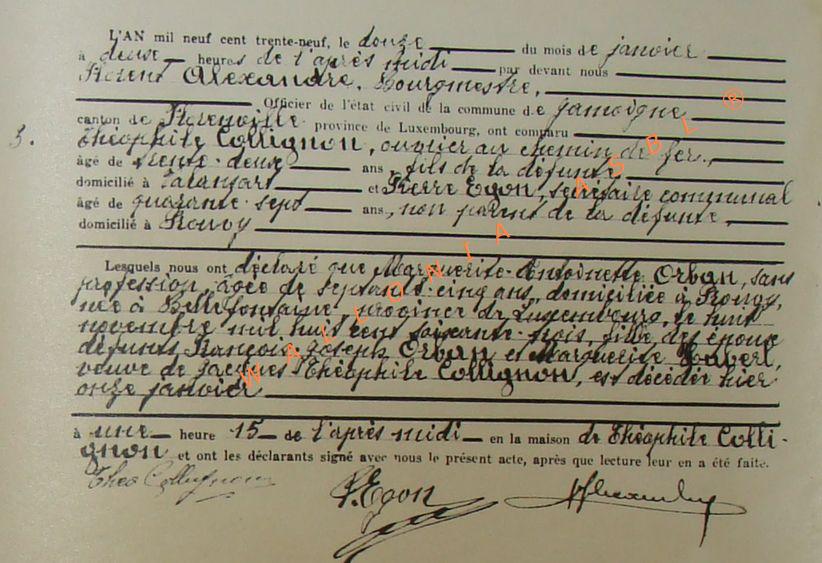 L'AN mil neuf cent trente-neuf, le douze du mois de janvier
à deux heures de l'après midi par devant nous
Florent Alexandre, Bourgmestre,
Officier de l'état civil de la commune de Jamoigne
canton de Florenville province de Luxembourg, ont comparu
3. Théophile Collignon, ouvrier au chemin de fer,
âgé de trente-deux ans, fils de la défunte
domicilié à et Pierre Egon, secrétaire communal
âgé de quarante-sept ans, non parent de la défunte,
domicilié à Prouvy
Lesquels nous ont déclaré que Marguerite-Antoinette Orban, sans
profession, âgée de septante-cinq ans, domiciliée à Prouvy,
née à Bellefontaine province de Luxembourg, le huit
novembre mil huit cent soixante-trois, fille des époux
défunts François-Joseph Orban et Marguerite
veuve de Jacques-Théophile Collignon, est décédée hier
onze janvier
à une heure 15 de l'après midi en la maison de Théophile Colli-
gnon et ont les déclarants signé avec nous le présent acte, après que lecture leur en a été faite.
Theo Collignon P. Egon
WALLONIA ASBL ®